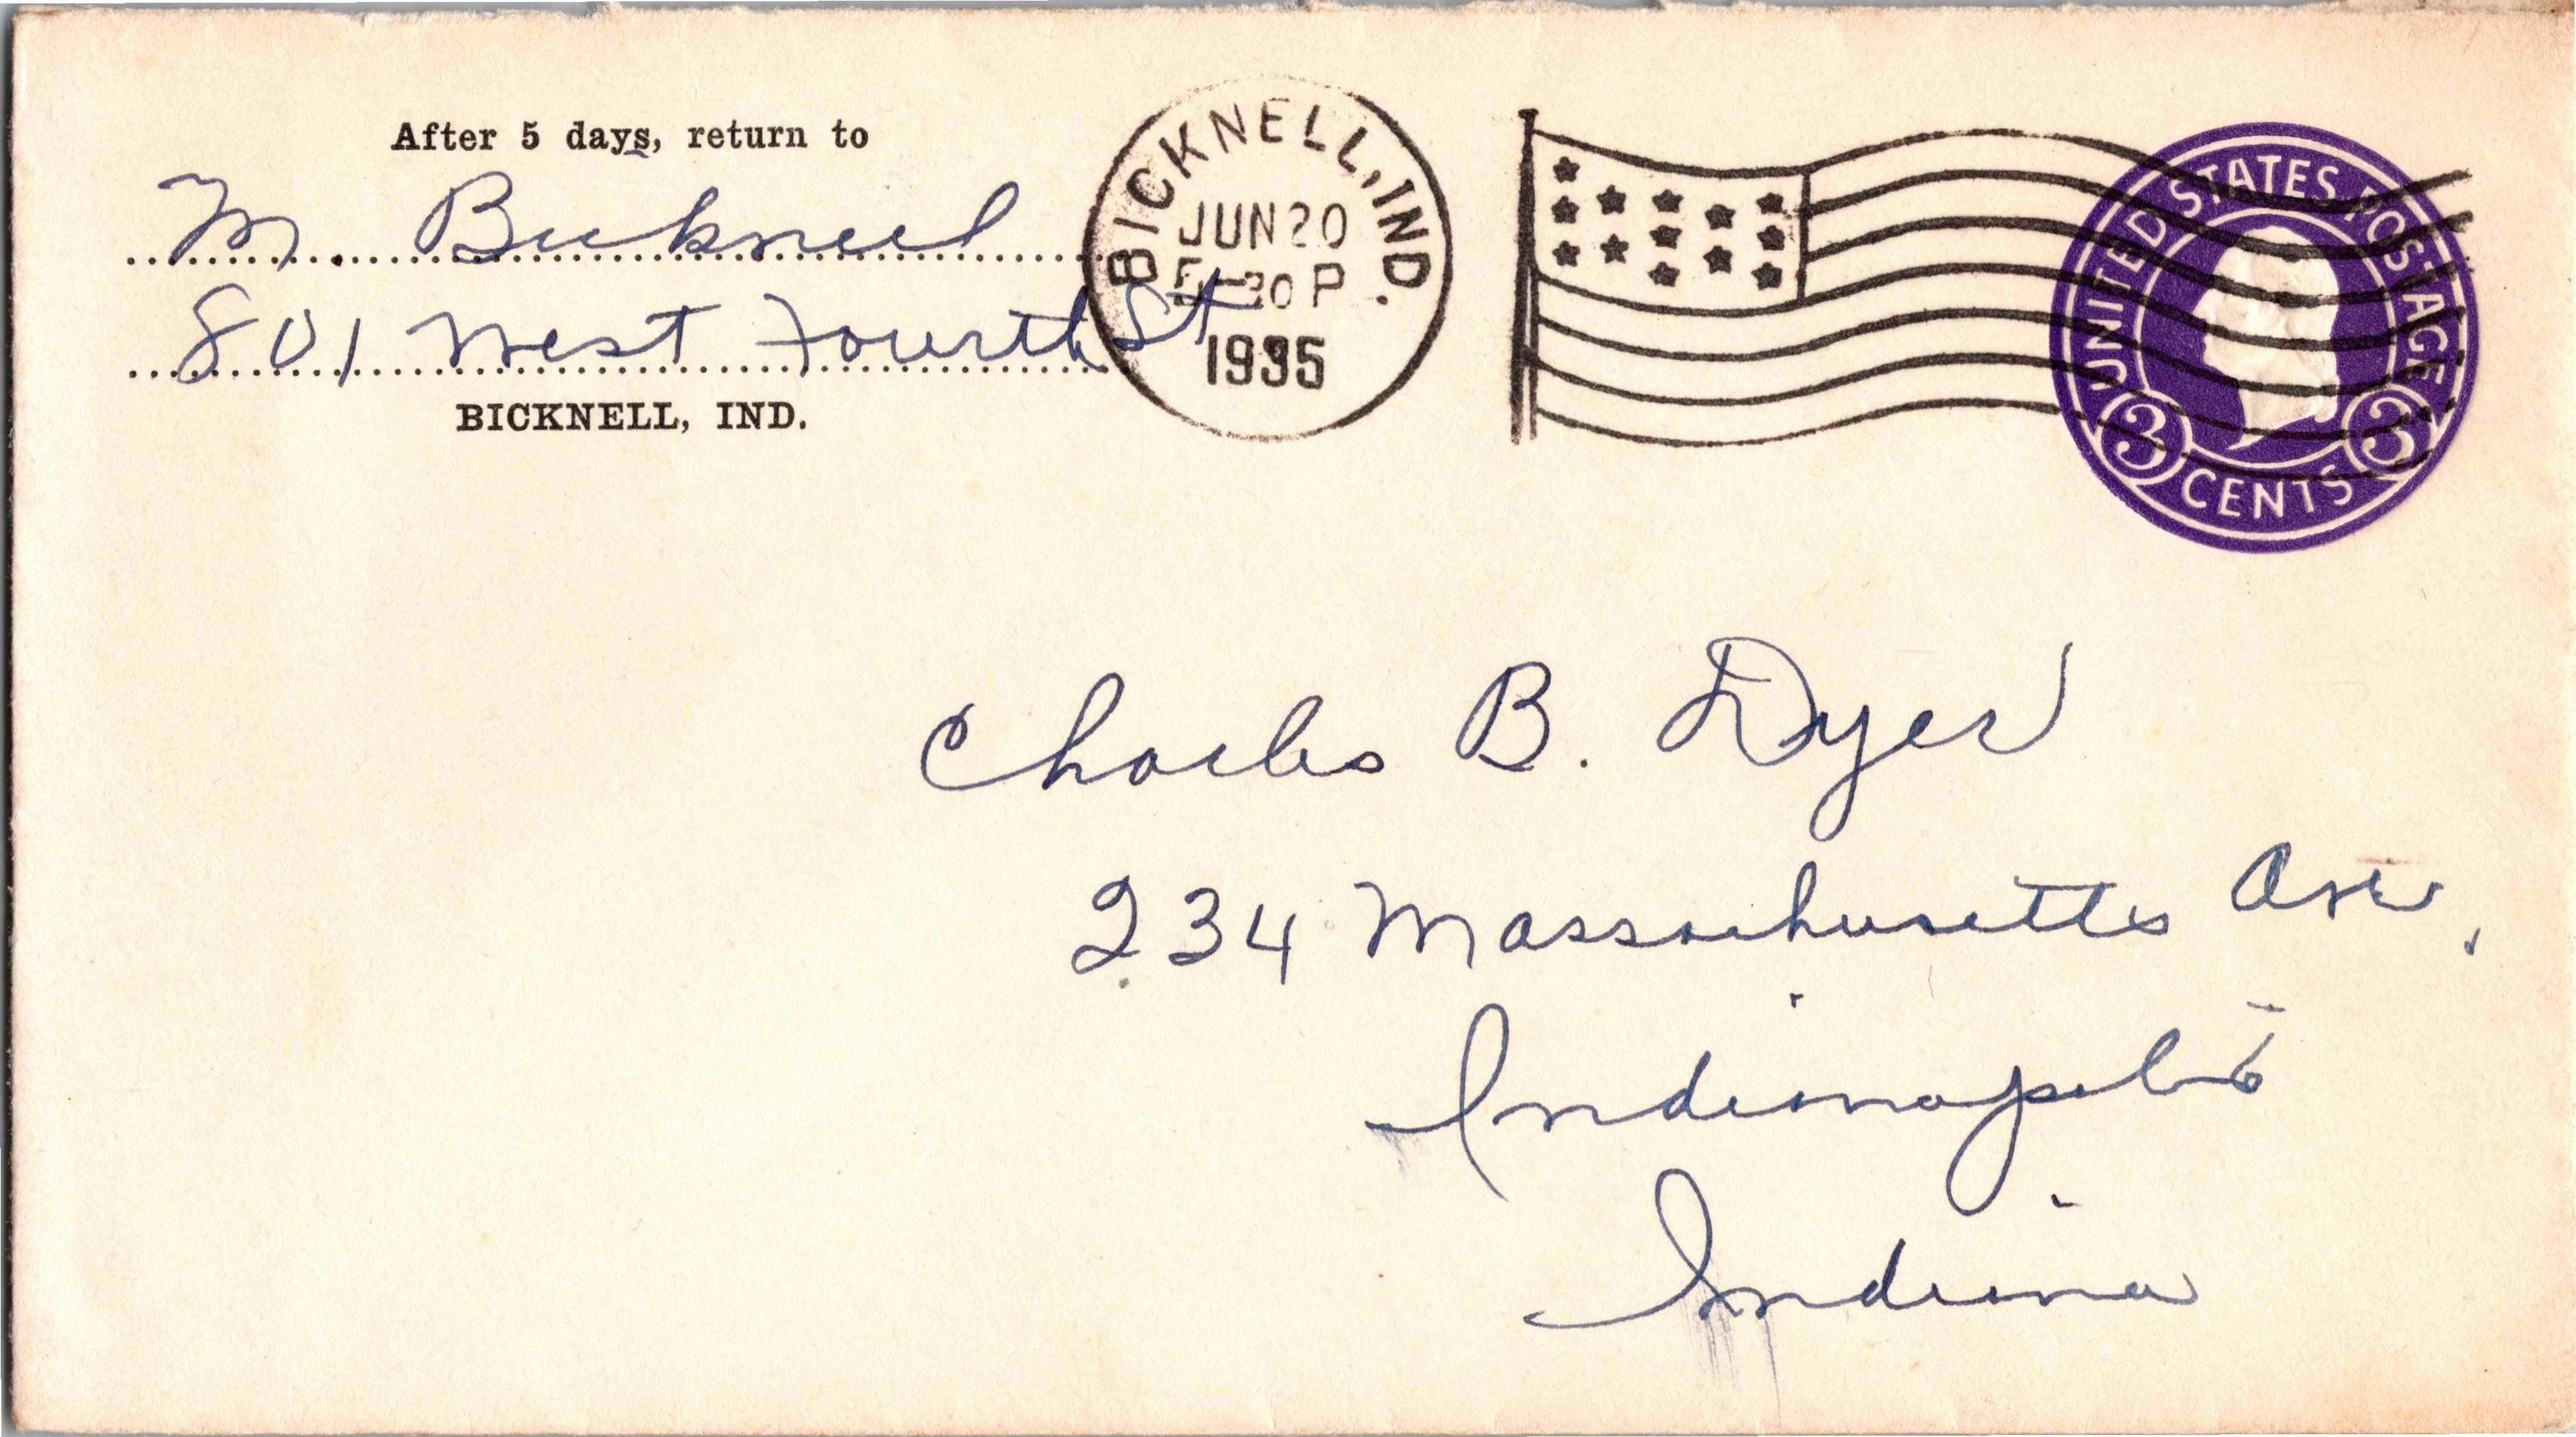 After 5 days, return to
M. Bicknell
801 West Fourth St
BICKNELL, IND.
BICKNELL, IND.
JUN 20
30 P
1935
UNITED STATES POSTAGE
3 CENTS 3
Charles B. Dyer
234 Massachusetts Ave.
Indianapolis
Indiana